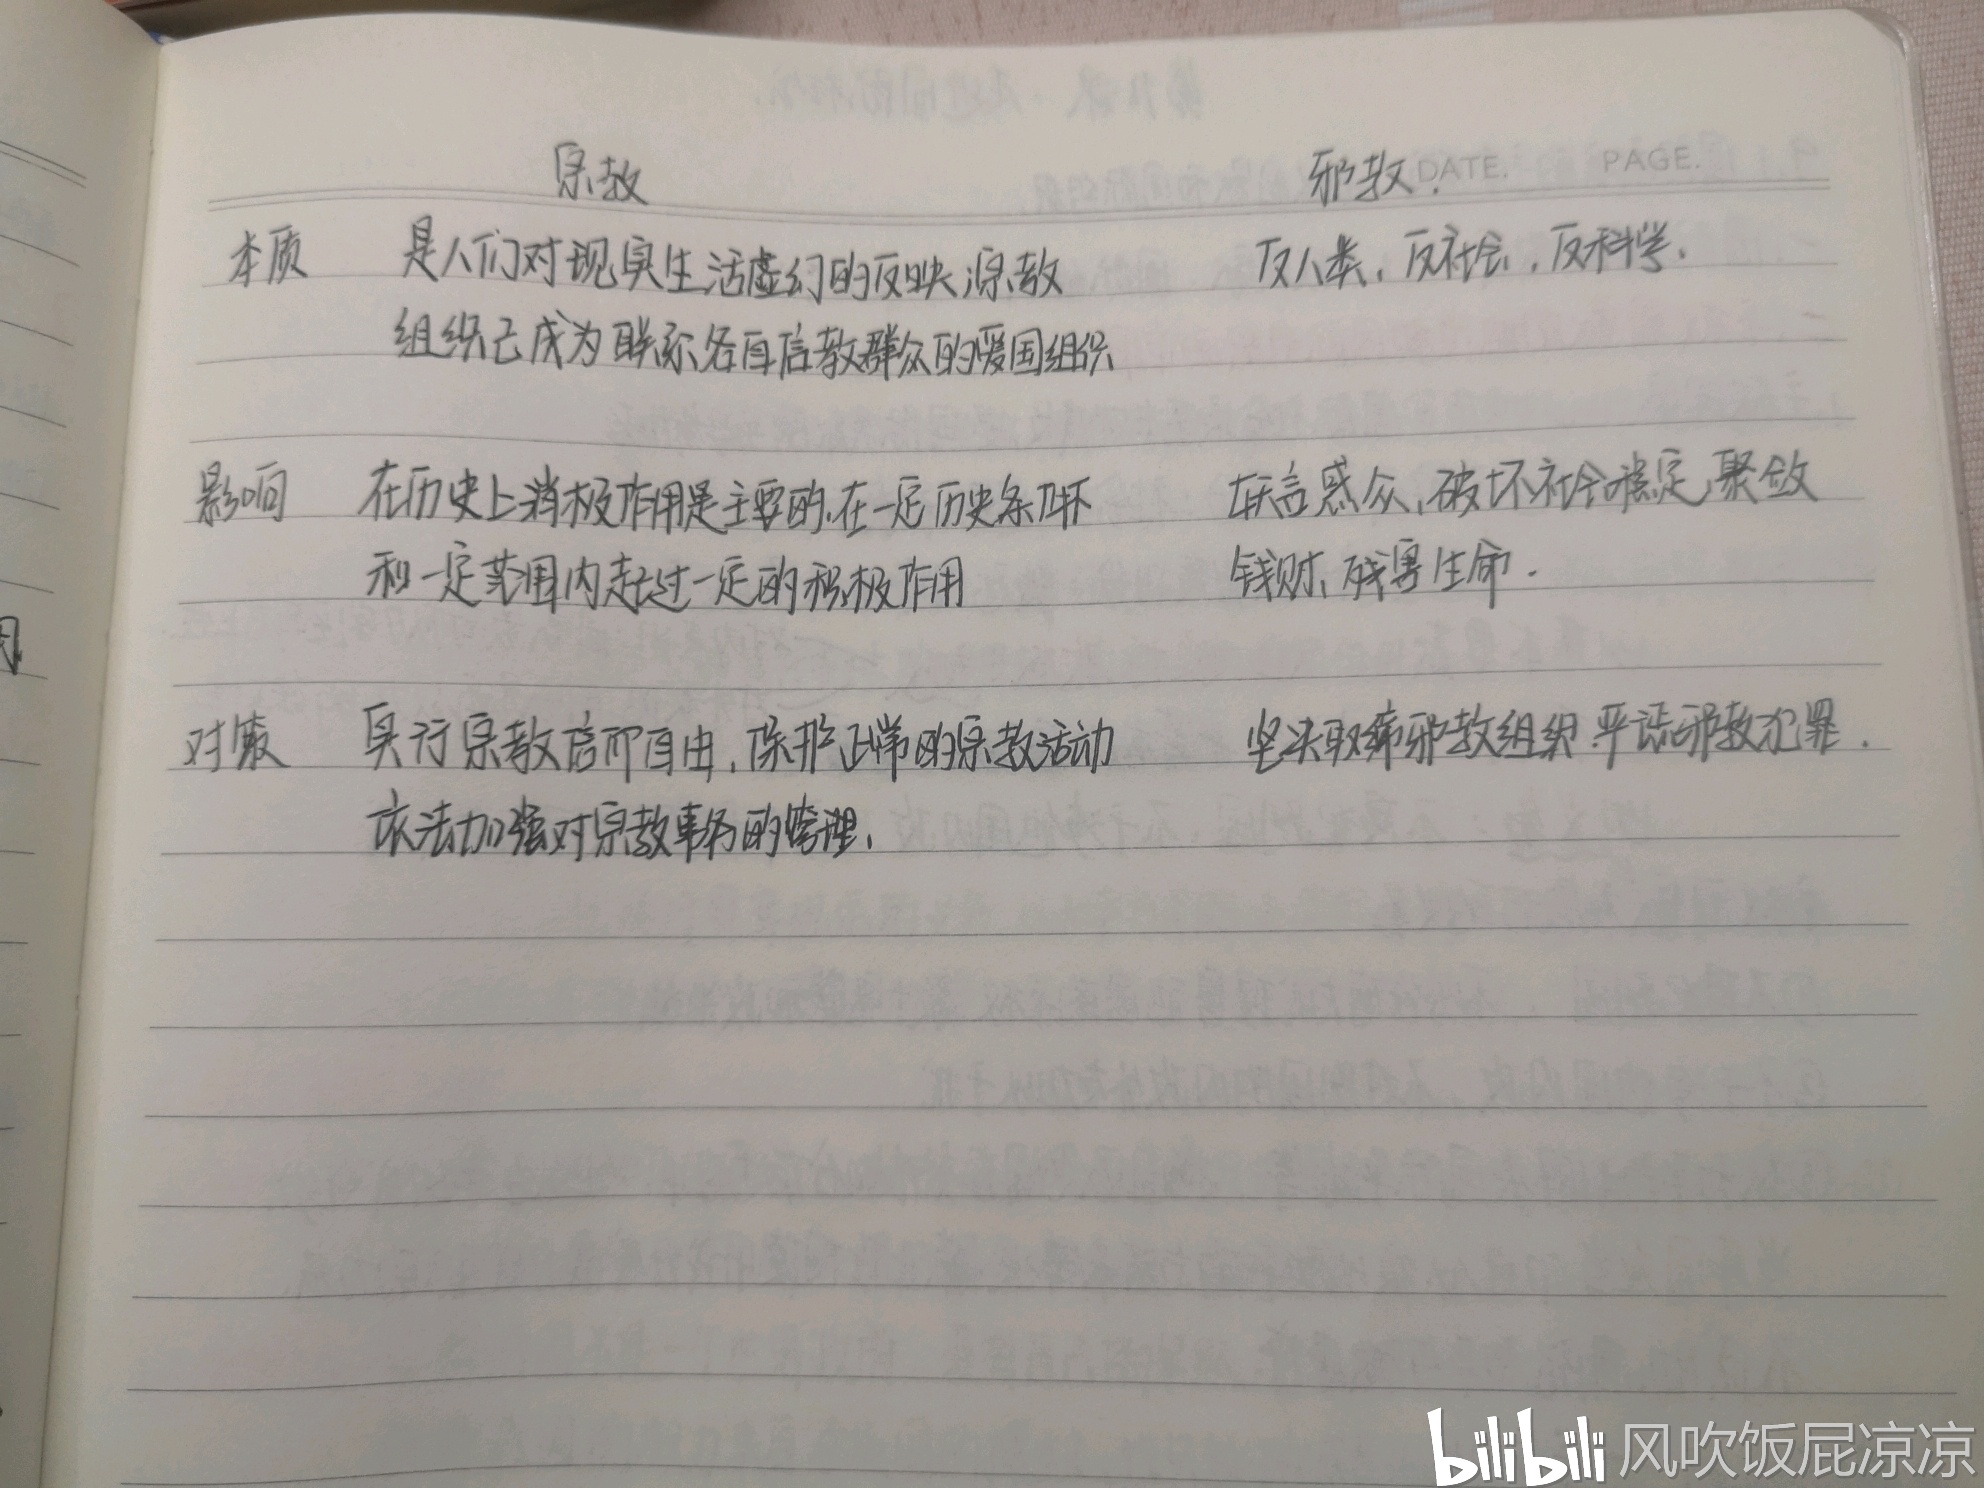 宗教 邪教. DATE. PAGE.
本质 是人们对现实生活虚幻的反映,宗教 反人类,反社会,反科学.
组织已成为联系各自信教群众的爱国组织
影响 在历史上消极作用是主要的,在一定历史条件 妖言惑众,破坏社会稳定,聚敛
和一定范围内起过一定的积极作用 钱财,残害生命.
对策 实行宗教信仰自由,保护正常的宗教活动 坚决取缔邪教组织.严惩邪教犯罪.
依法加强对宗教事务的管理.
bilibili 风吹饭屁凉凉